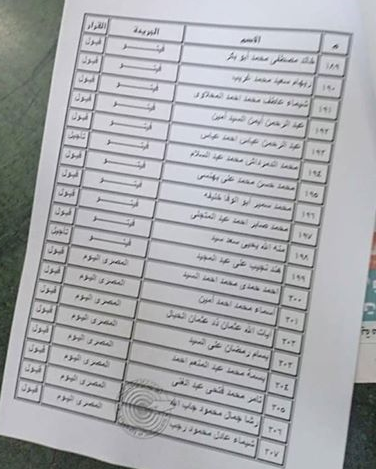 م الاسم الجريدة القرار
١٨٩ خالد مصطفى محمد أبو بكر فيتو قبول
١٩٠ ريهام سعيد محمد غريب فيتو قبول
١٩١ شيماء عاطف محمد احمد المحلاوى فيتو قبول
١٩٢ عبد الرحمن أيمن السيد أمين فيتو قبول
١٩٣ عبد الرحمن عباس احمد عباس فيتو قبول
١٩٤ محمد الدمرداش محمد عبد السلام فيتو تأجيل
١٩٥ محمد حسن محمد على بهنسى فيتو قبول
١٩٦ محمد سمير أبو الوفا خليفه فيتو قبول
١٩٧ محمد صابر احمد عبد المتجلى فيتو قبول
١٩٨ منه الله يحيى سعد سيد فيتو قبول
١٩٩ هند نجيب على عبد المجيد فيتو تأجيل
٢٠٠ احمد حمدى محمد احمد السيد المصرى اليوم قبول
٢٠١ اسماء محمد احمد أمين المصرى اليوم قبول
٢٠٢ آيات الله عثمان المصرى اليوم قبول
٢٠٣ بسام رمضان على السيد المصرى اليوم قبول
٢٠٤ بسمة محمد عبد المنعم احمد المصرى اليوم قبول
٢٠٥ تامر محمد فتحى عبد الغنى المصرى اليوم قبول
٢٠٦ رشا جمال محمود جاب الله المصرى اليوم قبول
٢٠٧ شيماء عادل محمود رجب المصرى اليوم قبول